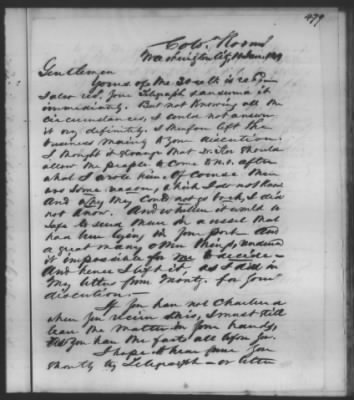 479
Col. Rooms
Washington City
Gentlemen
Yours of the 20 ulto is recd
I also recd your Telegraph & answered it
immediately. But not knowing all the
circumstances, I could not answer
it very definitely. I therefore left the
business mainly to your discretion.
I thought it strange that should
allow the people to come to after
what I wrote him. Of course there
was some reason, which I do not know
And why they could not go back, I did
not know. And whether it would be
safe to send them in a vessel that
had been lying in your port And
a great many other things, rendered
it impossible for me to decide
And hence I left it as I did in
my letter from Montg. for your
discretion.
If you have not chartered
when you receive this, I must still
leave the matter in your hands,
You have the facts all before you.
I hope to hear from you
shortly by Telegraph or letter